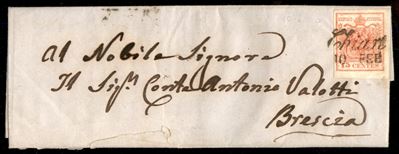 Al Nobile Signore
Il Sig.r Conte Antonio Valotti
Brescia
Chiari
10 FEB
15 CENTES